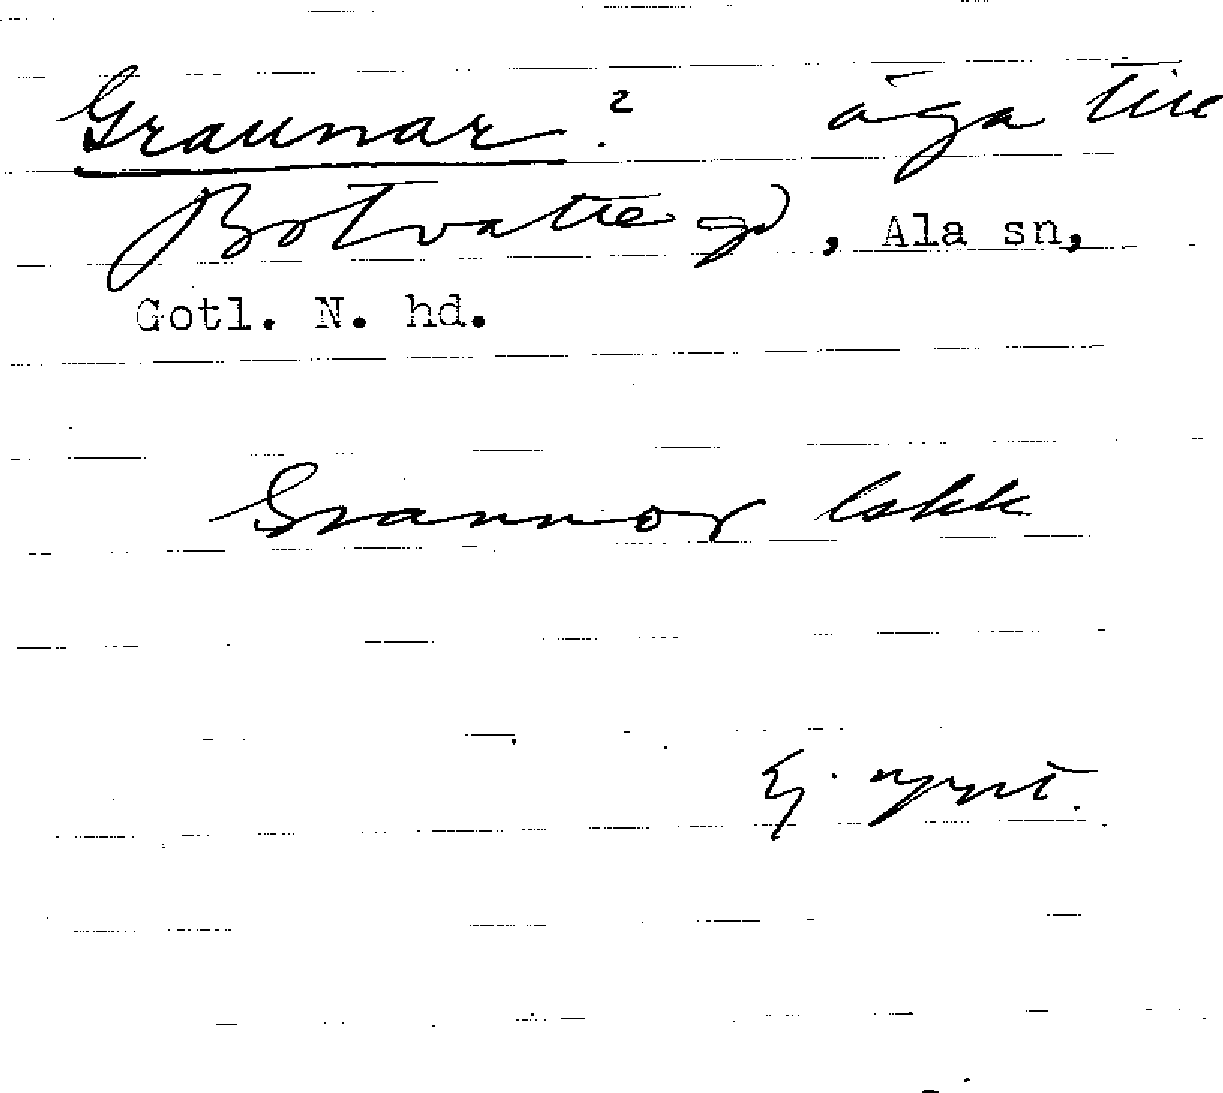 Graunar? äga till
Botvatte gd, Ala sn,
Gotl. N. hd.
Grannor lskk
Ej. uppt.